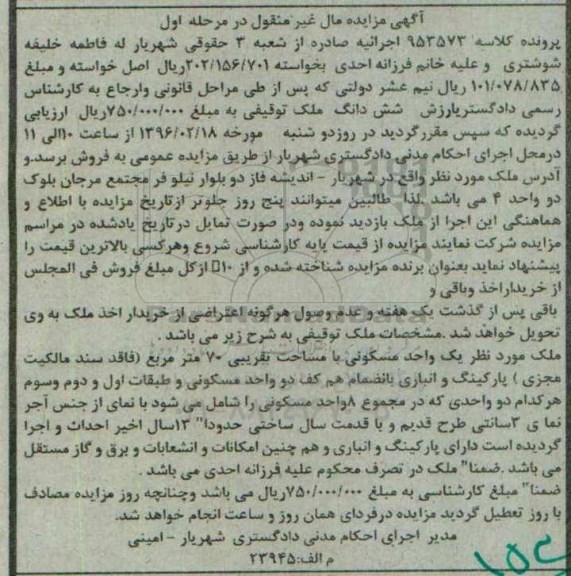 آگهی مزایده مال غیر منقول در مرحله اول
پرونده کلاسه ۹۵۳۵۷۳ اجرائیه صادره از شعبه ۳ حقوقی شهریار له فاطمه خلیفه
شوشتری و علیه خانم فرزانه احدی بخواسته ۲۰۲/۱۵۶/۷۰۱ریال اصل خواسته و مبلغ
۱۰۱/۰۷۸/۸۳۵ ریال نیم عشر دولتی که پس از طی مراحل قانونی وارجاع به کارشناس
رسمی دادگستریارزش شش دانگ ملک توقیفی به مبلغ ۷۵۰/۰۰۰/۰۰۰ریال ارزیابی
گردیده که سپس مقررگردید در روزدو شنبه مورخه ۱۳۹۶/۰۲/۱۸ از ساعت ۱۰الی ۱۱
درمحل اجرای احکام مدنی دادگستری شهریار از طریق مزایده عمومی به فروش برسد.و
آدرس ملک مورد نظر واقع در شهریار - اندیشه فاز دو بلوار نیلو فر مجتمع مرجان بلوک
دو واحد ۴ می باشد .لذا طالبین میتوانند پنج روز جلوتر ازتاریخ مزایده با اطلاع و
هماهنگی این اجرا از ملک بازدید نموده ودر صورت تمایل درتاریخ یادشده در مراسم
مزایده شرکت نمایند مزایده از قیمت پایه کارشناسی شروع وهرکسی بالاترین قیمت را
پیشنهاد نماید بعنوان برنده مزایده شناخته شده و از ۱۰ ازکل مبلغ فروش فی المجلس
از خریداراخذ وباقی و
باقی پس از گذشت یک هفته و عدم وصول هرگونه اعتراضی از خریدار اخذ ملک به وی
تحویل خواهد شد .مشخصات ملک توقیفی به شرح زیر می باشد .
ملک مورد نظر یک واحد مسکونی با مساحت تقریبی ۷۰ متر مربع (فاقد سند مالکیت
مجزی ) پارکینگ و انباری بانضمام هم کف دو واحد مسکونی و طبقات اول و دوم وسوم
هرکدام دو واحدی که در مجموع ۸واحد مسکونی را شامل می شود با نمای از جنس آجر
نما ی ۳سانتی طرح قدیم و با قدمت سال ساختی حدودا" ۱۳سال اخیر احداث و اجرا
گردیده است دارای پارکینگ و انباری و هم چنین امکانات و انشعابات و برق و گاز مستقل
می باشد .ضمنا" ملک در تصرف محکوم علیه فرزانه احدی می باشد .
ضمنا" مبلغ کارشناسی به مبلغ ۷۵۰/۰۰۰/۰۰۰ریال می باشد وچنانچه روز مزایده مصادف
با روز تعطیل گردید مزایده درفردای همان روز و ساعت انجام خواهد شد.
مدیر اجرای احکام مدنی دادگستری شهریار - امینی
م الف:۲۳۹۴۵